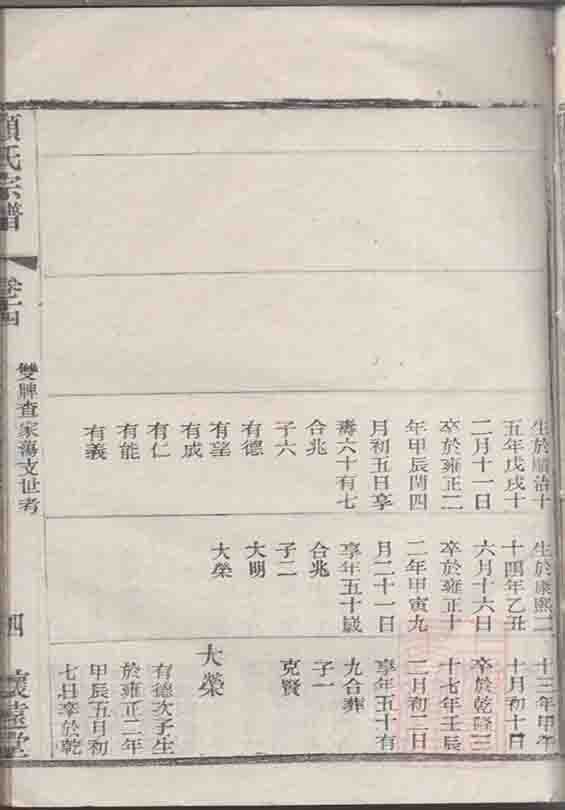 生於順治十
五年戊戌十
二月十一日
卒於雍正二
年甲辰閏四
月初五日享
壽六十有七
合兆
子六
有德
有望
有成
有仁
有能
有義
生於康熙二
十四年乙丑
六月十六日
卒於雍正十
二年甲寅九
月二十一日
享年五十歲
合兆
子二
大明
大榮
十三年甲午
十月初十日
卒於乾隆三
十七年壬辰
二月初二日
享年五十有
九合葬
子一
克賢
大榮
有德次子生
於雍正二年
甲辰五月初
七日卒於乾
氏宗譜
卷十四
雙牌查家蕩支世考
四
懷遠堂